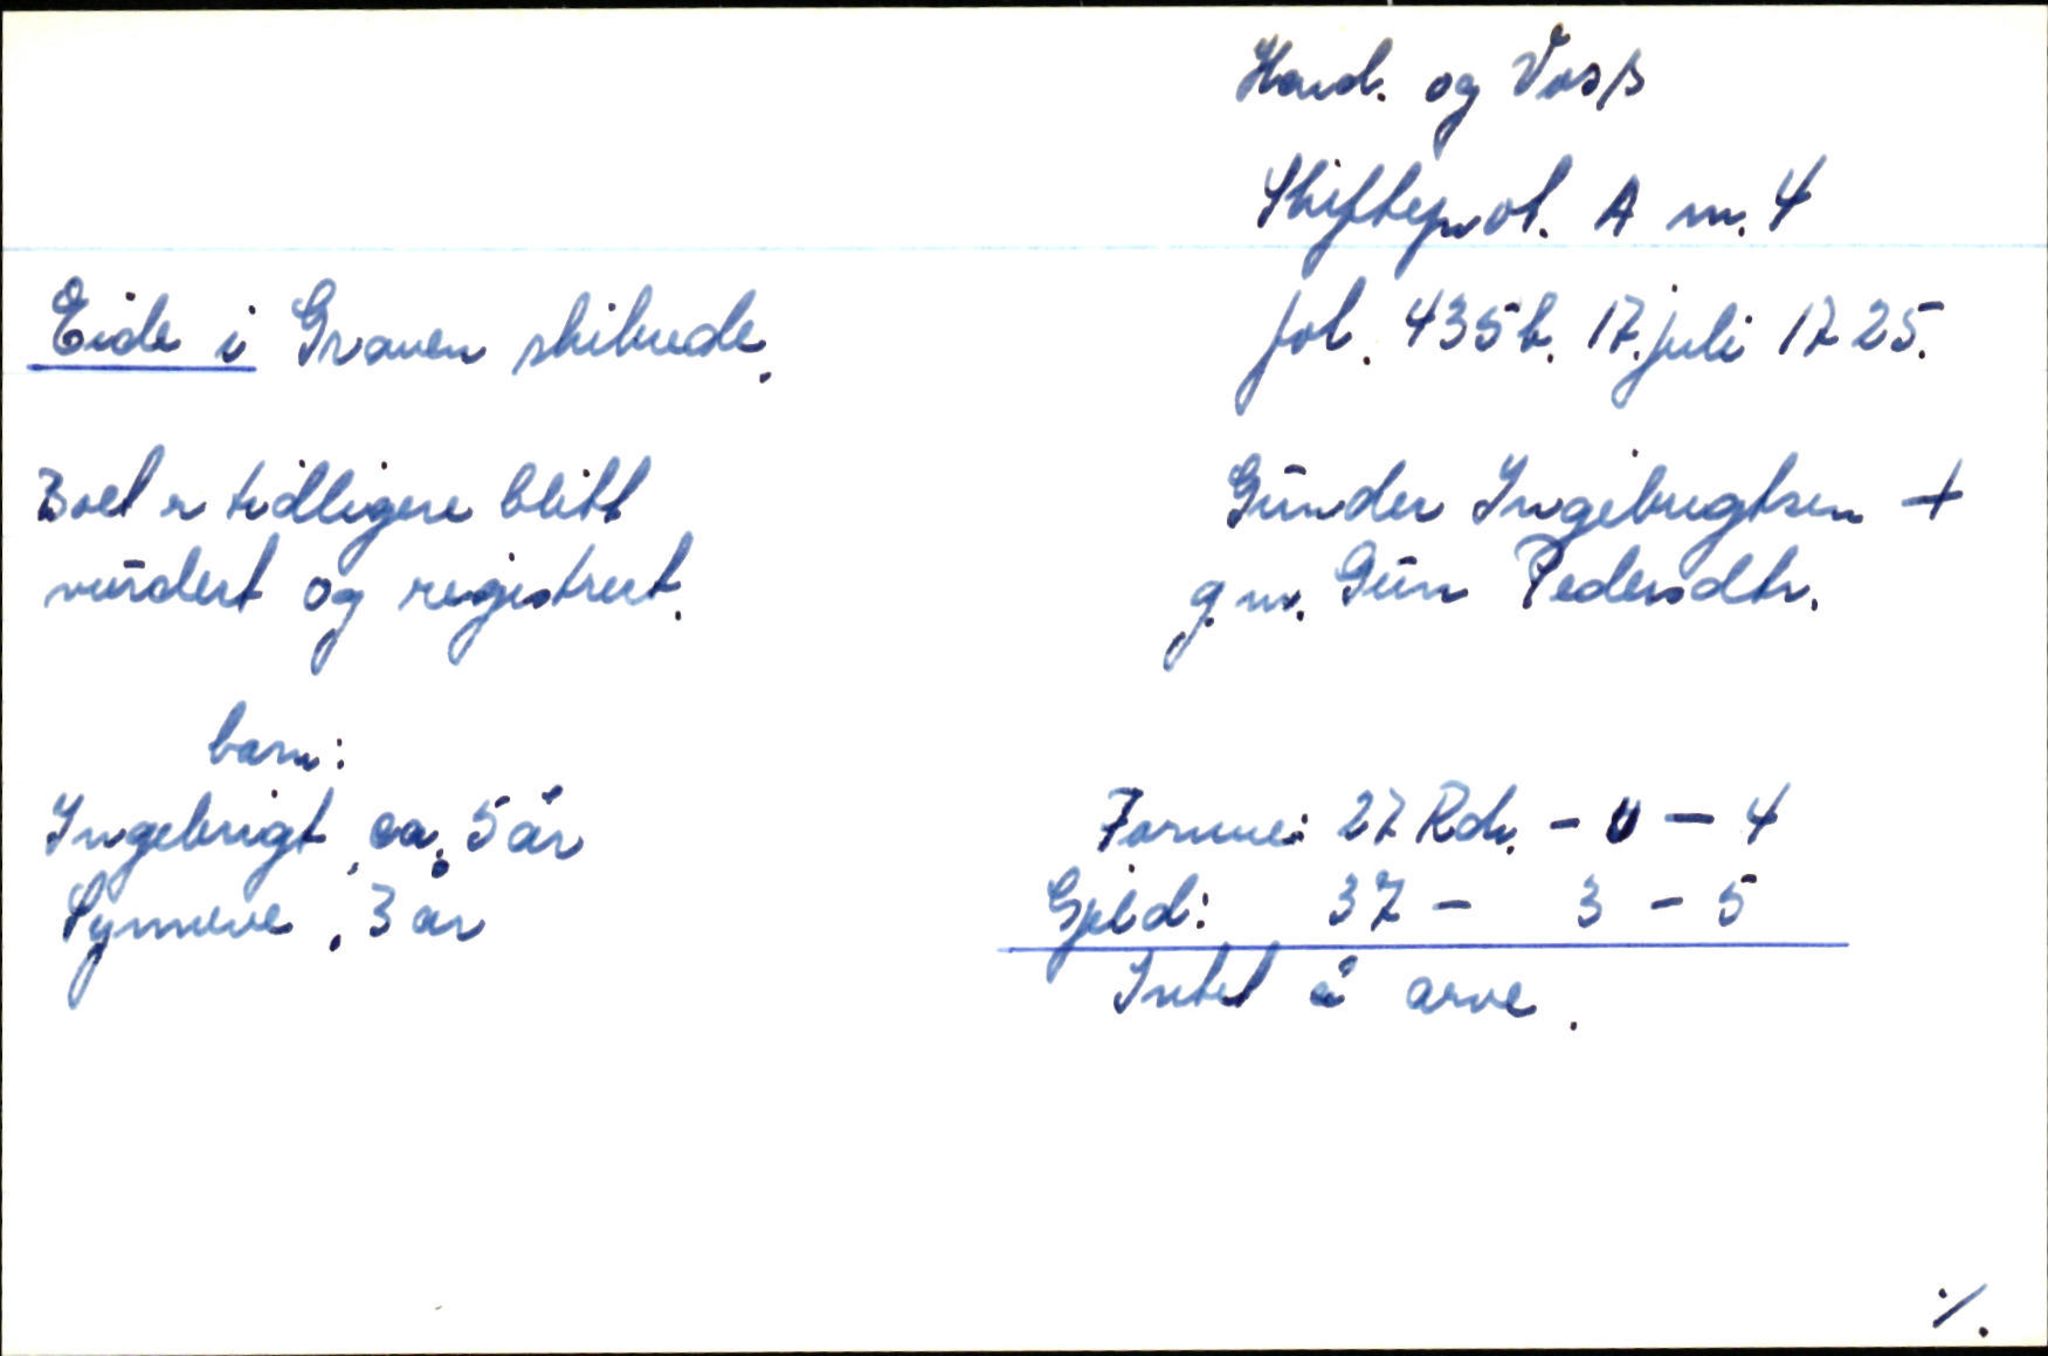 Hard. og Voss
Skifteprot. A nr. 4
Eide i Graven skibrede.
fol. 435b. 17. juli 1725.
Boet er tidligere blitt
vurdert og registrert.
Gunder Ingebrigtsen +
g.m. Gun Pedersdtr.
barn:
Ingebrigt, ca. 5 år
Synneve, 3 år
Formue: 27 Rdr. - 0 - 4
Gjeld: 37 - 3 - 5
Intet å arve.